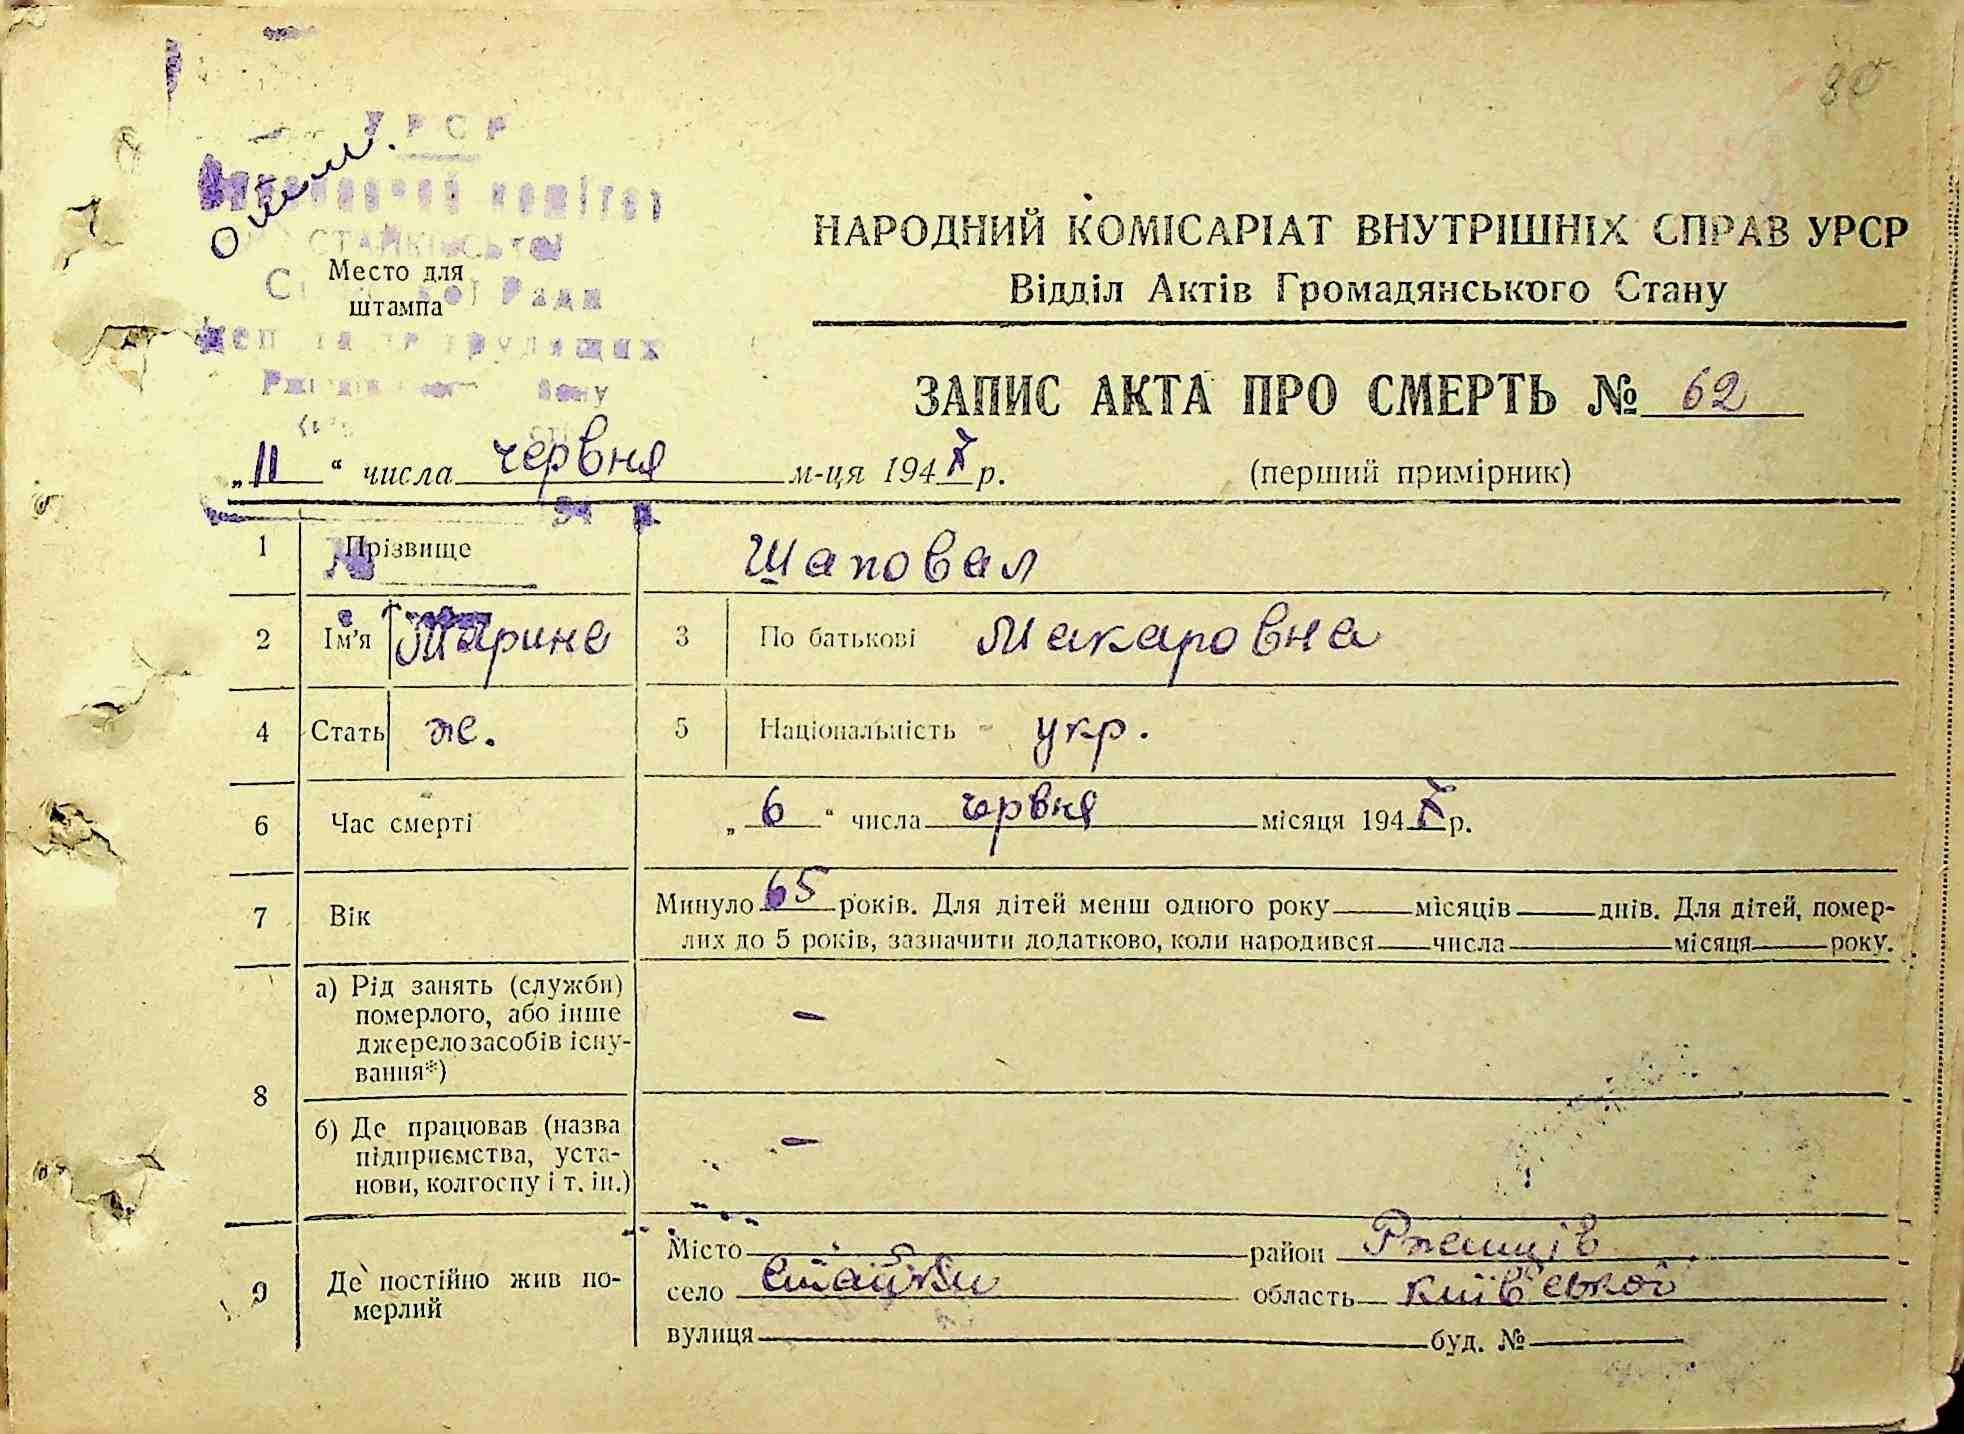 80
УРСР
Виконавчий комітет
СТАЙКІВСЬКОЇ
Ради
трудящих
Место для
штампа
НАРОДНИЙ КОМІСАРІАТ ВНУТРІШНІХ СПРАВ УРСР
Відділ Актів Громадянського Стану
ЗАПИС АКТА ПРО СМЕРТЬ № 62
„11“ числа червня м-ця 1947 р.
(перший примірник)
1 Прізвище Шаповал
2 Ім'я Марина 3 По батькові Макаровна
4 Стать ж. 5 Національність укр.
6 Час смерті „6“ числа червня місяця 1947 р.
7 Вік Минуло 65 років. Для дітей менш одного року місяців днів. Для дітей, помер-
лих до 5 років, зазначити додатково, коли народився числа місяця року.
8 а) Рід занять (служби)
померлого, або інше
джерело засобів існу-
вання*) –
б) Де працював (назва
підприємства, уста-
нови, колгоспу і т. ін.) –
9 Де постійно жив по-
мерлий
Місто район Ржищів
село Стайки область київської
вулиця буд. №